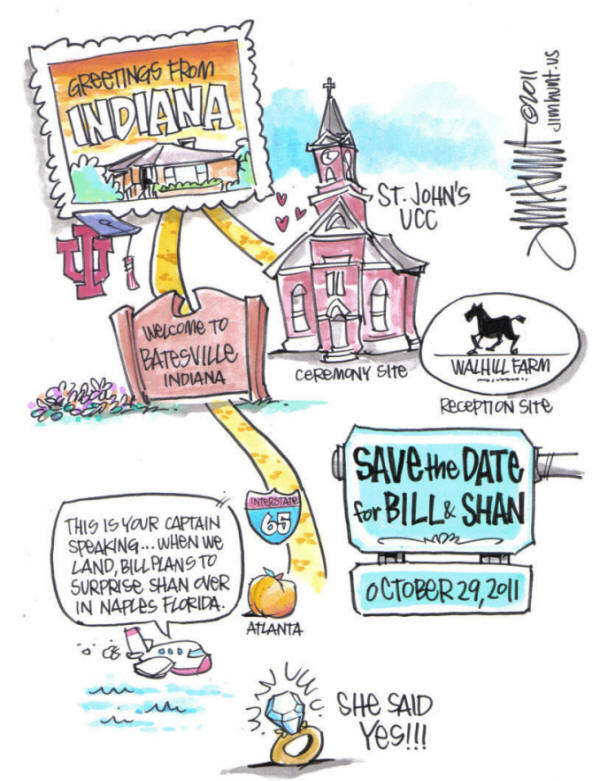 GREETINGS FROM
INDIANA
Jim Hunt ©2011
jimhunt.us
ST. JOHN'S
UCC
IU
WELCOME TO
BATESVILLE
INDIANA
CEREMONY SITE
WALHILL FARM
RECEPTION SITE
SAVE the DATE
for BILL & SHAN
OCTOBER 29, 2011
INTERSTATE
65
THIS IS YOUR CAPTAIN
SPEAKING... WHEN WE
LAND, BILL PLANS TO
SURPRISE SHAN OVER
IN NAPLES FLORIDA.
ATLANTA
SHE SAID
YES!!!